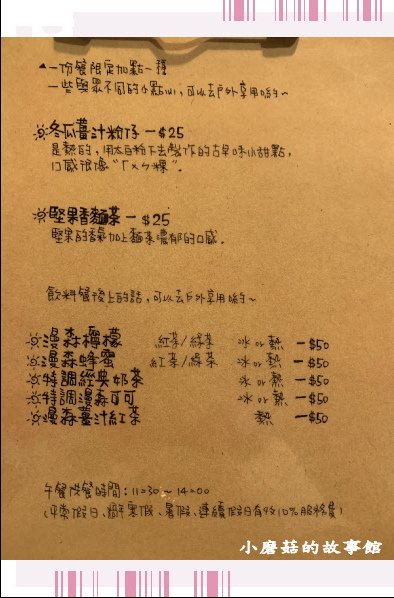 ▲一份餐限定加點一種
一些與眾不同的小點心,可以去戶外享用喲~
冬瓜薑汁粉仔 - $25
是熱的,用太白粉下去製作的古早味小甜點,
口感很像“ㄏㄨㄣ粿”。
堅果香麵茶 - $25
堅果的香氣加上麵茶濃郁的口感。
飲料餐後上的話,可以去戶外享用喲~
漫森檸檬 紅茶/綠茶 冰 or 熱 - $50
漫森蜂蜜 紅茶/綠茶 冰 or 熱 - $50
特調經典奶茶 冰 or 熱 - $50
特調漫森可可 冰 or 熱 - $50
漫森薑汁紅茶 熱 - $50
午餐供餐時間:11:30~14:00
(平常假日、過年寒假、暑假、連續假日有收10%服務費)
小磨菇的故事館